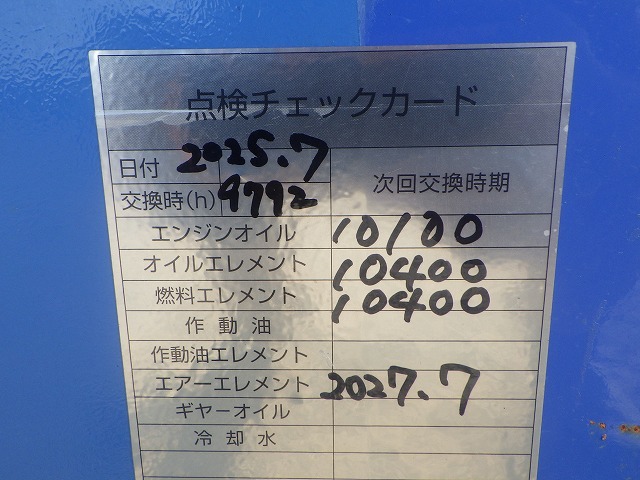 点検チェックカード
日付 2025.7
交換時(h) 9792 次回交換時期
エンジンオイル 10100
オイルエレメント 10400
燃料エレメント 10400
作動油
作動油エレメント
エアーエレメント 2027.7
ギヤーオイル
冷却水